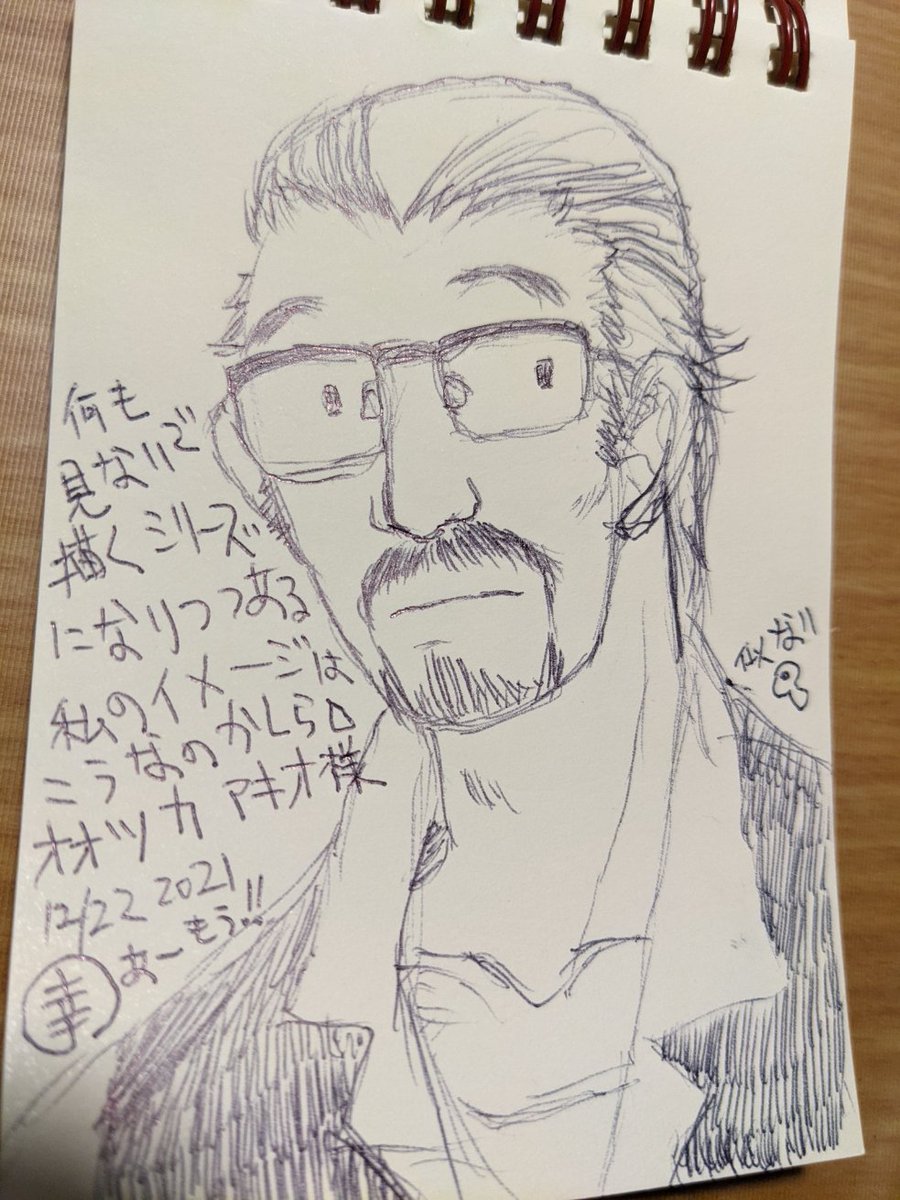 何も
見ないで
描くシリーズ
になりつつある
私のイメージは
こうなのかしら
オオツカ アキオ様
12/22 2021
あーもう!!
幸
似な